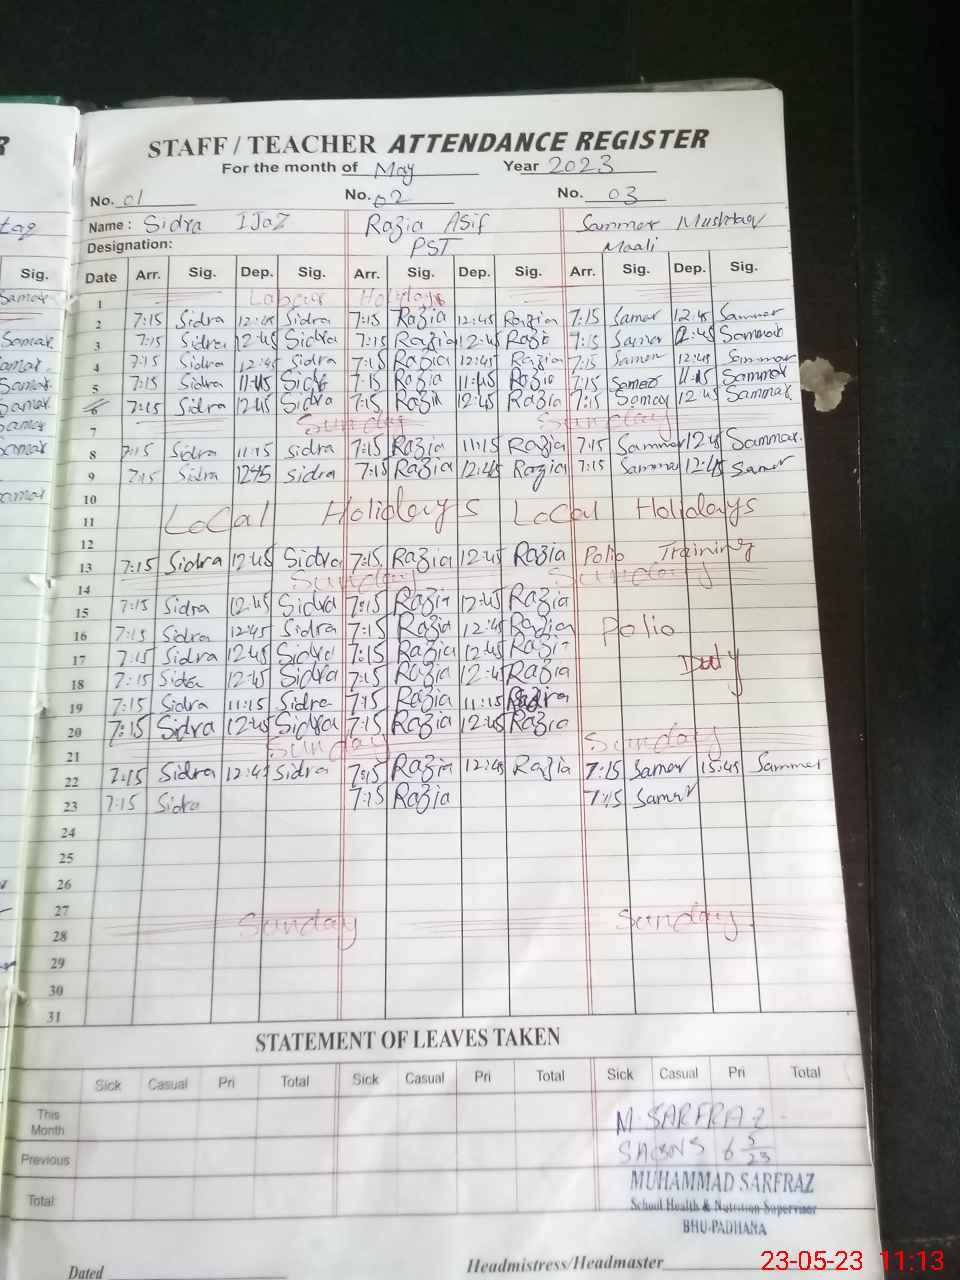 STAFF / TEACHER ATTENDANCE REGISTER
For the month of May Year 2023
No. 01 No. 02 No. 03
Name : Sidra IJaZ Razia ASif Sammer Mushtaq
Designation: PST Maali
Sig. Date Arr. Sig. Dep. Sig. Arr. Sig. Dep. Sig. Arr. Sig. Dep. Sig.
1 Labour Holydays
2 7:15 Sidra 12:45 Sidra 7:15 Razia 12:45 Razia 7:15 Samer 12:45 Sammer
3 7:15 Sidra 12:45 Sidra 7:15 Razia 12:45 Razia 7:15 Samer 12:45 Sammar
4 7:15 Sidra 12:45 Sidra 7:15 Razia 12:45 Razia 7:15 Samer 12:45 Sammar
5 7:15 Sidra 11:45 Sidra 7:15 Razia 11:45 Razia 7:15 Samer 11:15 Sammar
6 7:15 Sidra 12:45 Sidra 7:15 Razia 12:45 Razia 7:15 Samay 12:45 Sammar
7 Sunday Sunday
8 7:15 Sidra 11:15 Sidra 7:15 Razia 11:15 Razia 7:15 Sammer 12:45 Sammar.
9 7:15 Sidra 12:45 Sidra 7:15 Razia 12:45 Razia 7:15 Samme 12:45 Samer
10
11 LoCal Holidays LoCal Holidays
12
13 7:15 Sidra 12:45 Sidra 7:15 Razia 12:45 Razia Polio Training
14 Sunday Sunday
15 7:15 Sidra 12:45 Sidra 7:15 Razia 12:45 Razia
16 7:15 Sidra 12:45 Sidra 7:15 Razia 12:45 Razia Polio
17 7:15 Sidra 12:45 Sidra 7:15 Razia 12:45 Razia Duty
18 7:15 Sidra 12:45 Sidra 7:15 Razia 12:45 Razia
19 7:15 Sidra 11:15 Sidra 7:15 Razia 11:15 Razia
20 7:15 Sidra 12:45 Sidra 7:15 Razia 12:45 Razia
21 Sunday Sunday
22 7:15 Sidra 12:45 Sidra 7:15 Razia 12:45 Razia 7:15 Samer 15:45 Sammer
23 7:15 Sidra 7:15 Razia 7:15 Samer
24
25
26
27
28 Sunday Sunday
29
30
31
STATEMENT OF LEAVES TAKEN
Sick Casual Pri Total Sick Casual Pri Total Sick Casual Pri Total
This Month
M. SARFRAZ
Previous
6 5/23
Total:
MUHAMMAD SARFRAZ
School Health & Nutrition Supervisor
BHU-PADHANA
Dated Headmistress/Headmaster
23-05-23 11:13